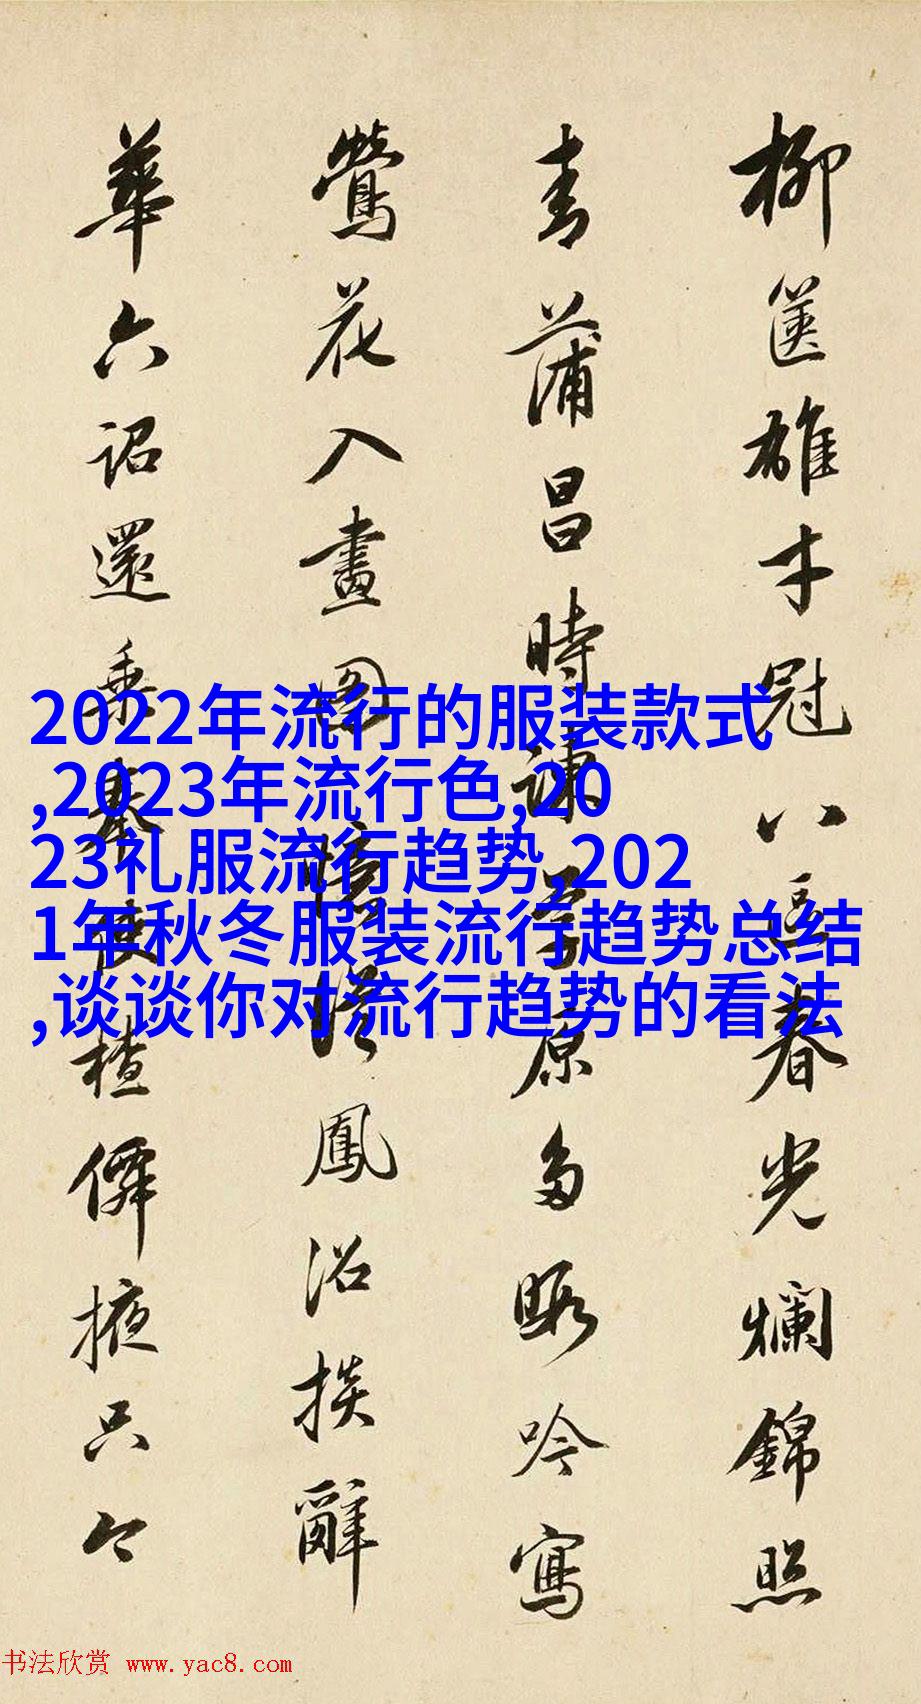 柳篋雄才冠八區春光爛錦照
青蒲昌時諫草原多暇吟寫
鶯花入畫圖憶從鳳沼掞辭
華六詔還乘奉使槎僊掖只今
2022年流行的服装款式
,2023年流行色,20
23礼服流行趋势,202
1年秋冬服装流行趋势总结
,谈谈你对流行趋势的看法
书法欣赏 www.yac8.com